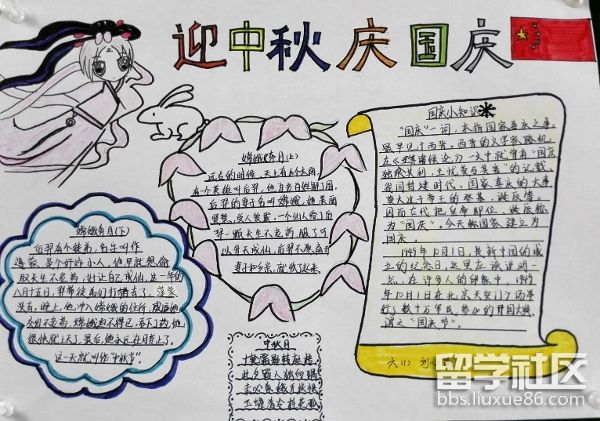 迎中秋庆国庆
嫦娥奔月(上)
远在的时候,天上有十个太阳
有个英雄叫后羿,他力
后羿的妻子名叫嫦娥,她美丽
贤慧,受人敬戴,一个仙人给了后
羿一颗长生不老药,服了可
以升天成仙,后羿不愿离开
妻子
嫦娥奔月(下)
后羿有个徒弟,名字叫作
逢蒙,是个奸诈小人,他早就想偷
取长生不老药,好让自己成仙,这一年的
八月十五日,羿带徒弟们打猎去了,逢蒙
没去,晚上,他冲入嫦娥的住所,威逼她
交出不老药,嫦娥迫不得已,吞下了药,她
很快就上天了,最后,她永远在月亮上了。
这一天就叫作“中秋节”。
中秋月
十轮霜影转庭梧
此夕羁人独向隅
未必素娥无怅恨
玉蟾清冷桂花孤
国庆小知识
“国庆”一词,本指国家喜庆之事,
最早见于西晋,西晋的文学家陆机
在《五等诸侯论》一文中就曾有“国庆
独飨其利,主忧莫与其害”的记载
我国封建时代,国家喜庆的大事
莫大过于帝王的登基、诞辰等。
因而古代把皇帝即位、诞辰称
为“国庆”。今天称国家建立为
国庆。
1949年10月1日,是新中国的成
立的纪念日。这里应该说明一
点,在许多人的印象中,1949
年10月1日在北京天安门广场举
行了数十万军民参加的开国大典
谓之“国庆节”。
六(1) 刘
留学社区
bbs.liuxue86.com